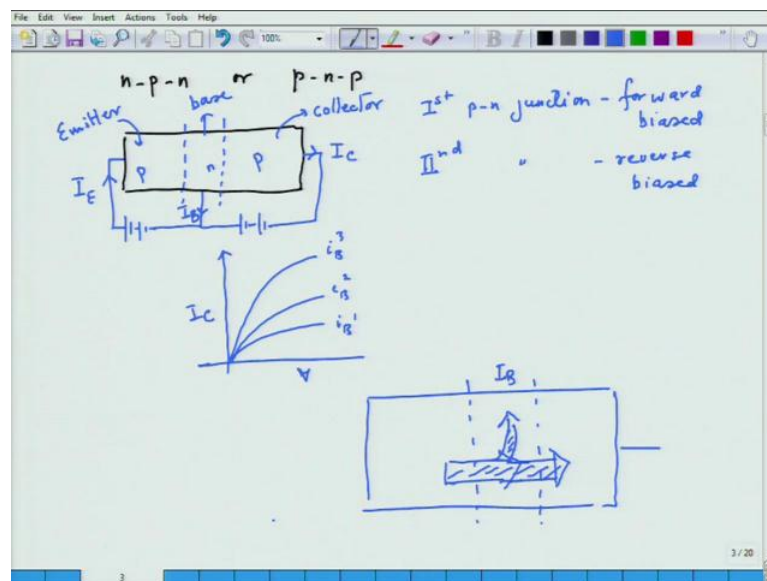 File Edit View Insert Actions Tools Help
100%
B I
n-p-n or p-n-p
Emitter base collector
p n p
I_E I_B I_C
Ist p-n junction - forward
biased
IInd " - reverse
biased
i_B^3
i_B^2
i_B^1
I_C
V
I_B
3 / 20
3